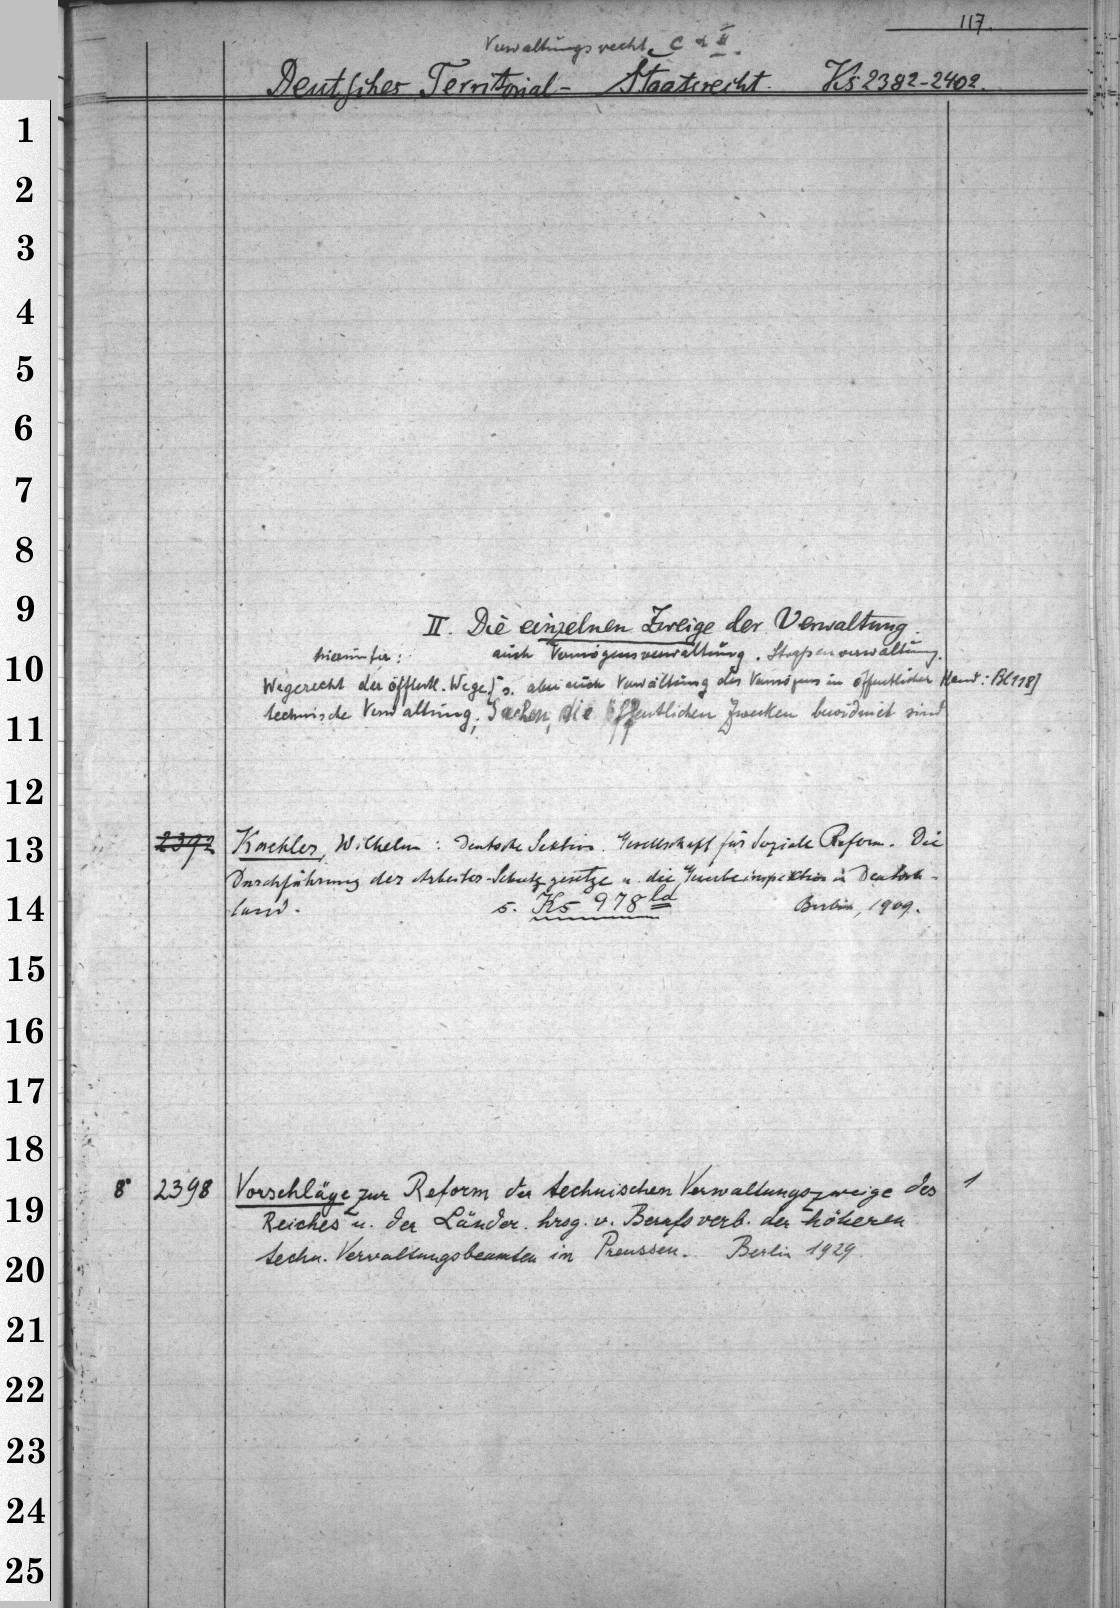 117.
Verwaltungsrecht C & II.
Deutsches Territorial- Staatsrecht. Ks 2382-2402.
1
2
3
4
5
6
7
8
9
II. Die einzelnen Zweige der Verwaltung.
hierunter: auch Vermögensverwaltung. Strassenverwaltung.
10
Wegerecht der öffentl. Wege [s. aber auch Verwaltung des Vermögens in öffentlicher Hand: Bl 118]
technische Verwaltung, Sachen, die öffentlichen Zwecken bewidmet sind
11
12
13
2392 Koehler, Wilhelm: Deutsche Sektion. Gesellschaft für Soziale Reform. Die
Durchführung der Arbeiter-Schutzgesetze u. die Gewerbeinspektion in Deutsch-
14
land. s. Ks 978 la Berlin, 1909.
15
16
17
18
8° 2398 Vorschläge zur Reform der technischen Verwaltungszweige des 1
19
Reiches u. der Länder. hrsg. v. Berufsverb. der höheren
techn. Verwaltungsbeamten in Preussen. Berlin 1929.
20
21
22
23
24
25